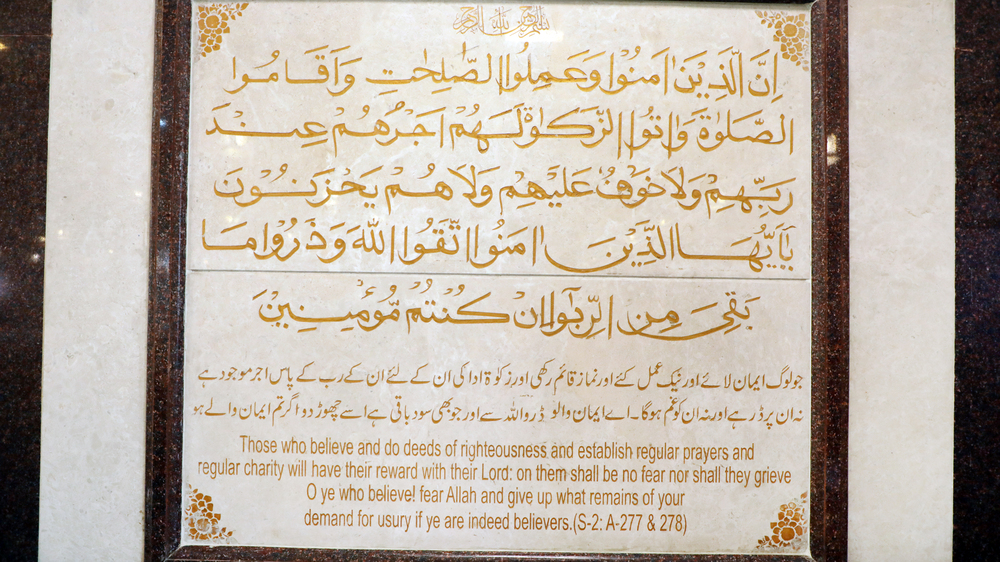 بسم الله الرحمن الرحيم
اِنَّ الَّذِيْنَ اٰمَنُوْا وَعَمِلُوا الصّٰلِحٰتِ وَاَقَامُوا
الصَّلٰوةَ وَاٰتَوُا الزَّكٰوةَ لَهُمْ اَجْرُهُمْ عِنْدَ
رَبِّهِمْ وَلَا خَوْفٌ عَلَيْهِمْ وَلَا هُمْ يَحْزَنُوْنَ
يٰۤاَيُّهَا الَّذِيْنَ اٰمَنُوا اتَّقُوا اللهَ وَذَرُوْا مَا
بَقِىَ مِنَ الرِّبٰۤوا اِنْ كُنْتُمْ مُّؤْمِنِيْنَ
جو لوگ ایمان لائے اور نیک عمل کئے اور نماز قائم رکھی اور زکوۃ ادا کی ان کے لئے ان کے رب کے پاس اجر موجود ہے
نہ ان پر ڈر ہے اور نہ ان کو غم ہوگا۔ اے ایمان والو ڈرو اللہ سے اور جو بھی سود باقی ہے اسے چھوڑ دو اگر تم ایمان والے ہو
Those who believe and do deeds of righteousness and establish regular prayers and
regular charity will have their reward with their Lord: on them shall be no fear nor shall they grieve
O ye who believe! fear Allah and give up what remains of your
demand for usury if ye are indeed believers.(S-2: A-277 & 278)